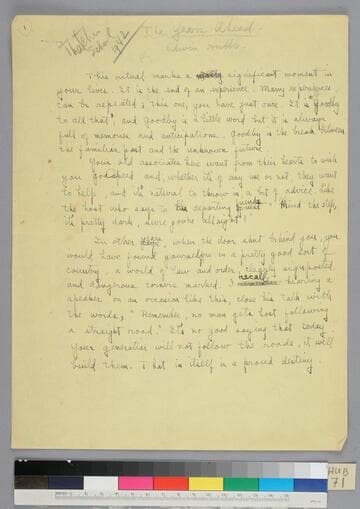 1
Thatcher
School
1942
The Years Ahead
Edwin Hubble
This ritual marks a significant moment in
your lives. It is the end of an experience. Many experiences
can be repeated; this one, you have just once. It is "goodby
to all that", and goodby is a little word but it is always
full of memories and anticipations. goodby is the break between
the familiar past and the unknown future
Your old associates here want from their hearts to wish
you godspeed and, whether its of any use or not, they want
to help, and its natural to throw in a bit of advice, like
the host who says to his departing guests, "Mind the step,
its pretty dark, sure you're all right".
In other years, when the door shut behind you, you
would have found yourselves in a pretty good sort of
country, a world of law and order, clearly signposted
and dangerous corners marked. I recall hearing a
speaker on an occasion like this, close his talk with
the words, "Remember, no man gets lost following
a straight road." It's no good saying that today.
Your generation will not follow the roads, it will
build them. That in itself is a proud destiny.
HUB
71